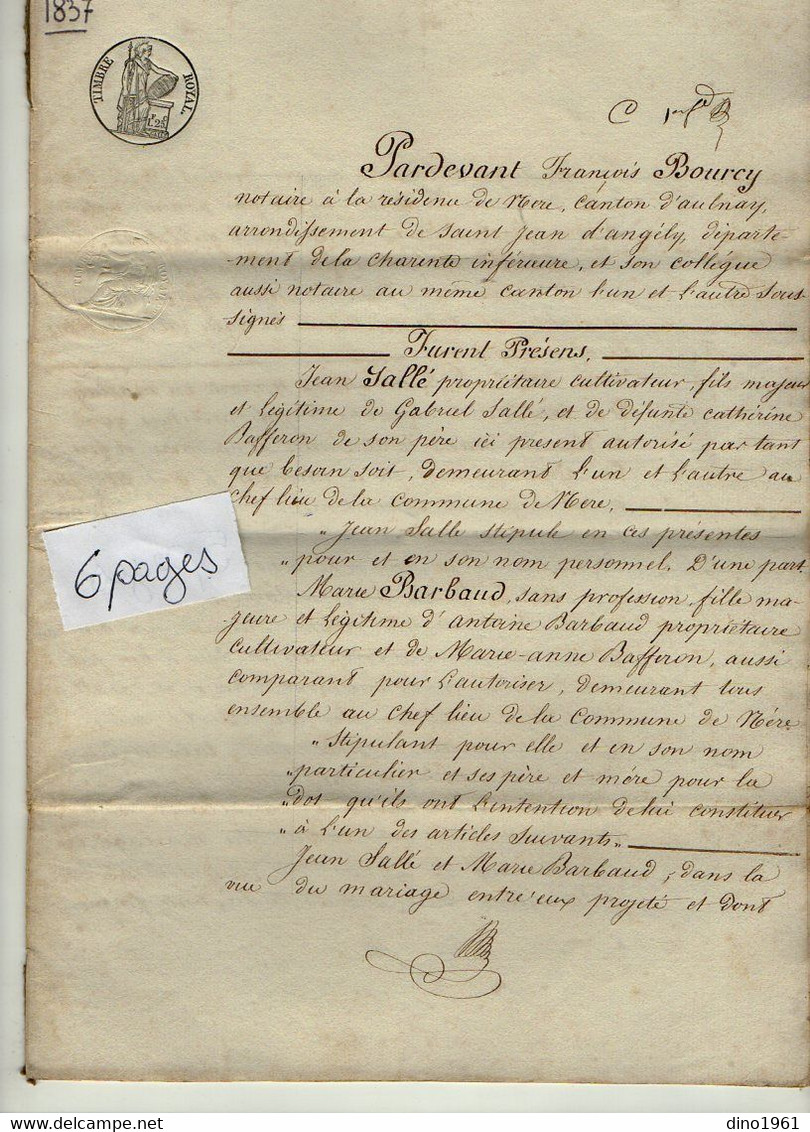 1837
TIMBRE ROYAL
Pardevant François Bourcy
notaire à la résidence de Nere, canton d'aulnay,
arrondissement de Saint Jean d'angély, départe-
-ment de la Charente inférieure, et son collégue
aussi notaire au même canton l'un et l'autre sous-
signés
Furent Présens,
Jean Sallé propriétaire cultivateur, fils majeur
et légitime de Gabriel Sallé, et de défunte cathérine
Bafferon de son père ici present autorisé par tant
que besoin soit, demeurant l'un et l'autre au
chef lieu de la commune de Nere,
„ Jean Sallé stipule en ces présentes
„ pour et en son nom personnel. D'une part.
Marie Barbaud, sans profession, fille ma-
jeure et légitime d'Antoine Barbaud propriétaire
cultivateur et de Marie-anne Bafferon, aussi
comparant pour l'autoriser, demeurant tous
ensemble au chef lieu de la commune de Nére.
„ Stipulant pour elle et en son nom
„ particulier et ses père et mére pour la
„ dot qu'ils ont l'intention de lui constituer
„ à l'un des articles suivants„
Jean Sallé et Marie Barbaud, dans la
vue du mariage entre'eux projeté et dont
6 pages
delcampe.net
dino1961